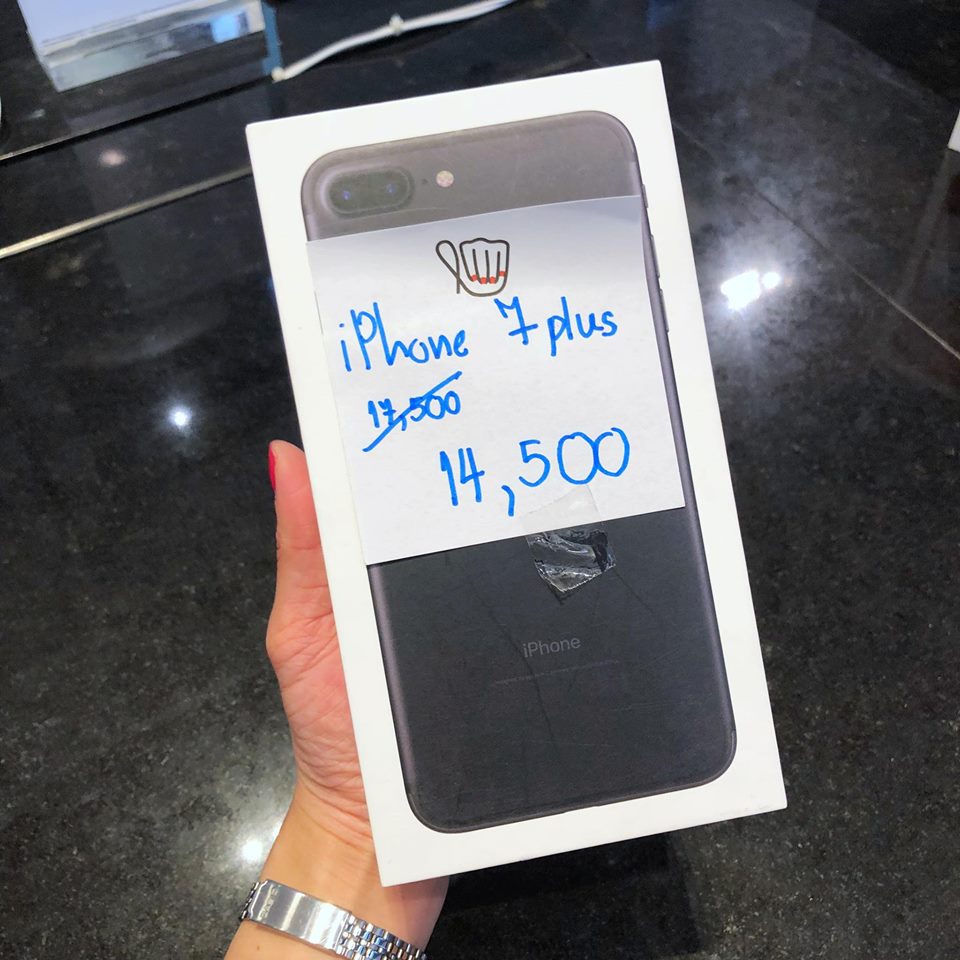 iPhone 7 plus
17,500
14,500
iPhone